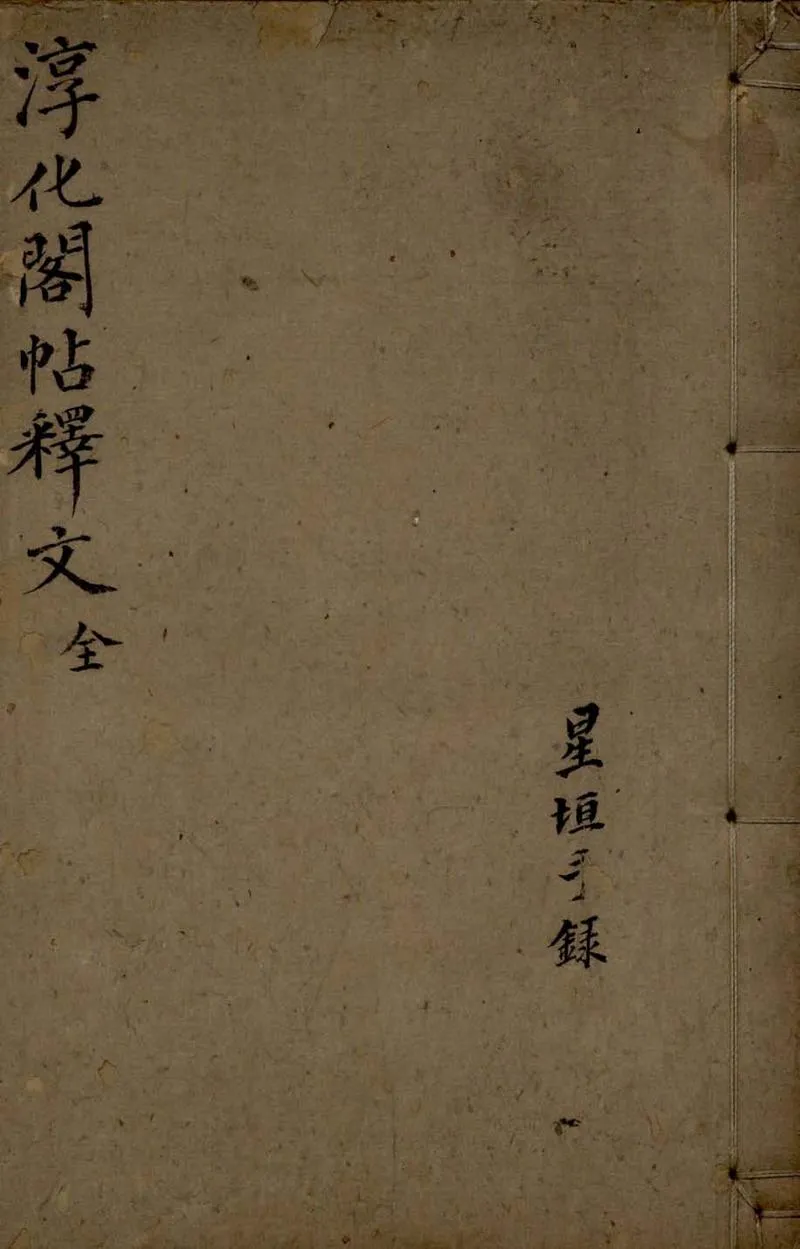 淳化閣帖釋文全
星垣手録